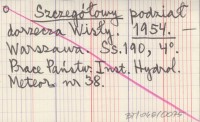 Szczegółowy podział
dorzecza Wisły. 1954. —
Warszawa. Ss. 190, 4°.
Prace Państw. Inst. Hydrol.
Meteor nr 38.